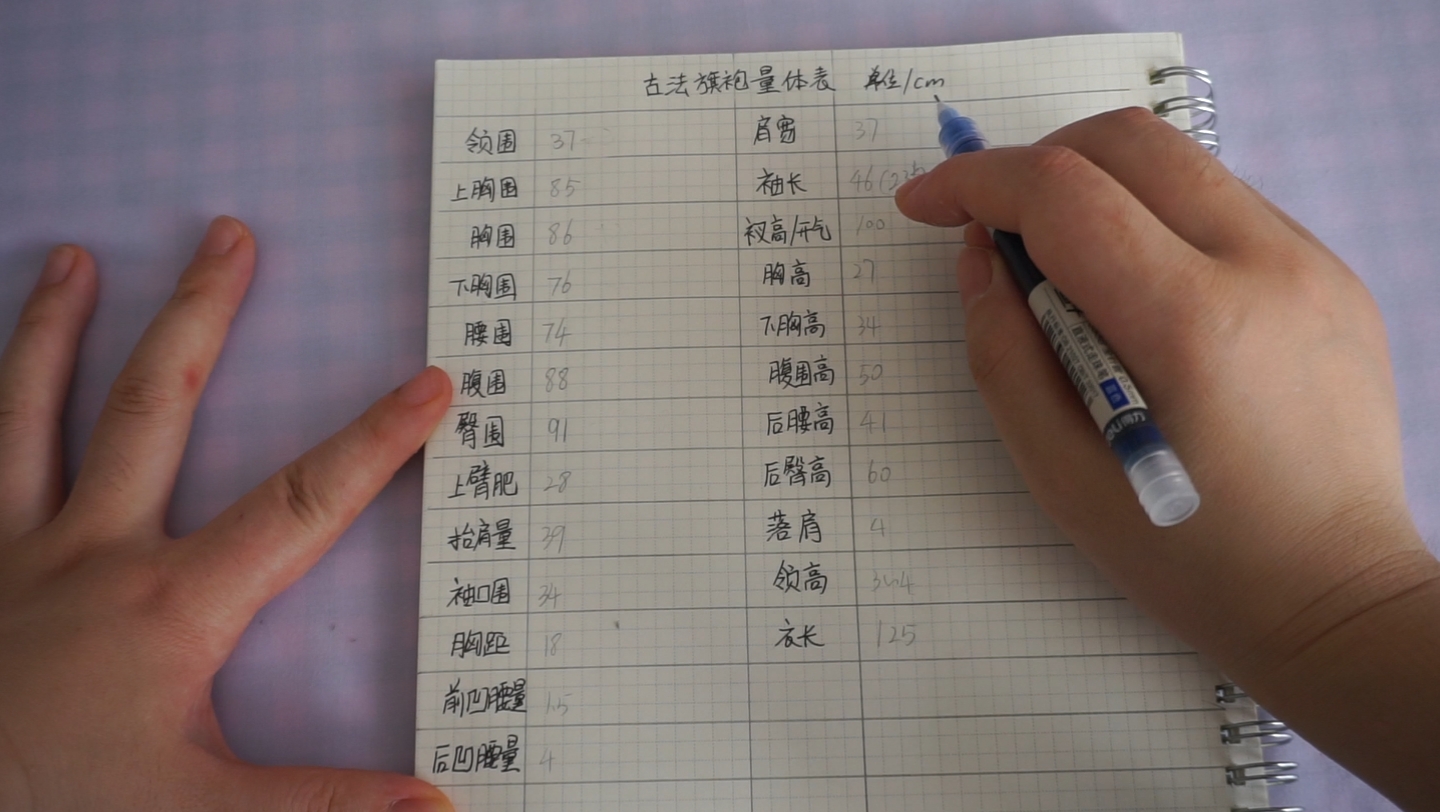 古法旗袍量体表 单位/cm
领围 37 肩宽 37
上胸围 85 袖长 46
胸围 86 衩高/开气 100
下胸围 76 胸高 27
腰围 74 下胸高 34
腹围 88 腹围高 50
臀围 91 后腰高 41
上臂肥 28 后臀高 60
抬肩量 39 落肩 4
袖口围 34 领高 3~4
胸距 18 衣长 125
前凹腰量 1.5
后凹腰量 4